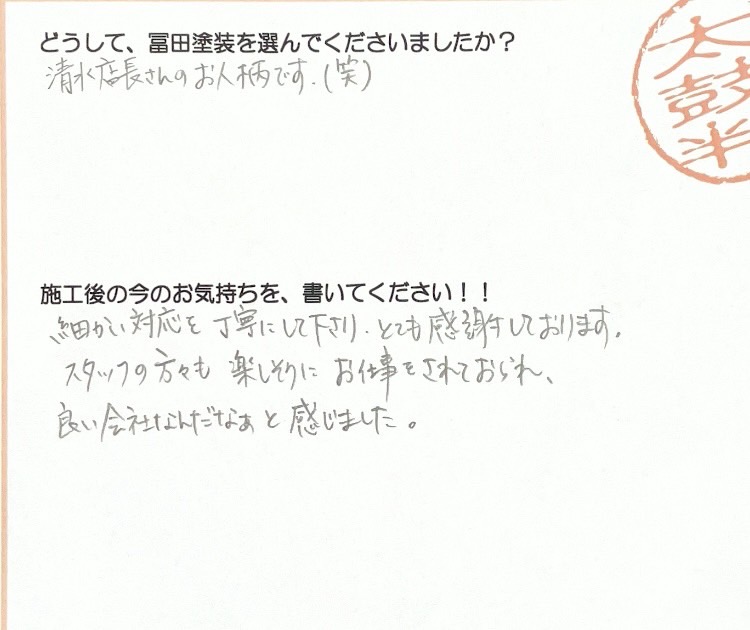 どうして、冨田塗装を選んでくださいましたか？
清水店長さんのお人柄です.(笑)
太鼓判
施工後の今のお気持ちを、書いてください！！
細かい対応を丁寧にして下さり、とても感謝しております。
スタッフの方々も楽しそうにお仕事をされておられ、
良い会社なんだなぁと感じました。